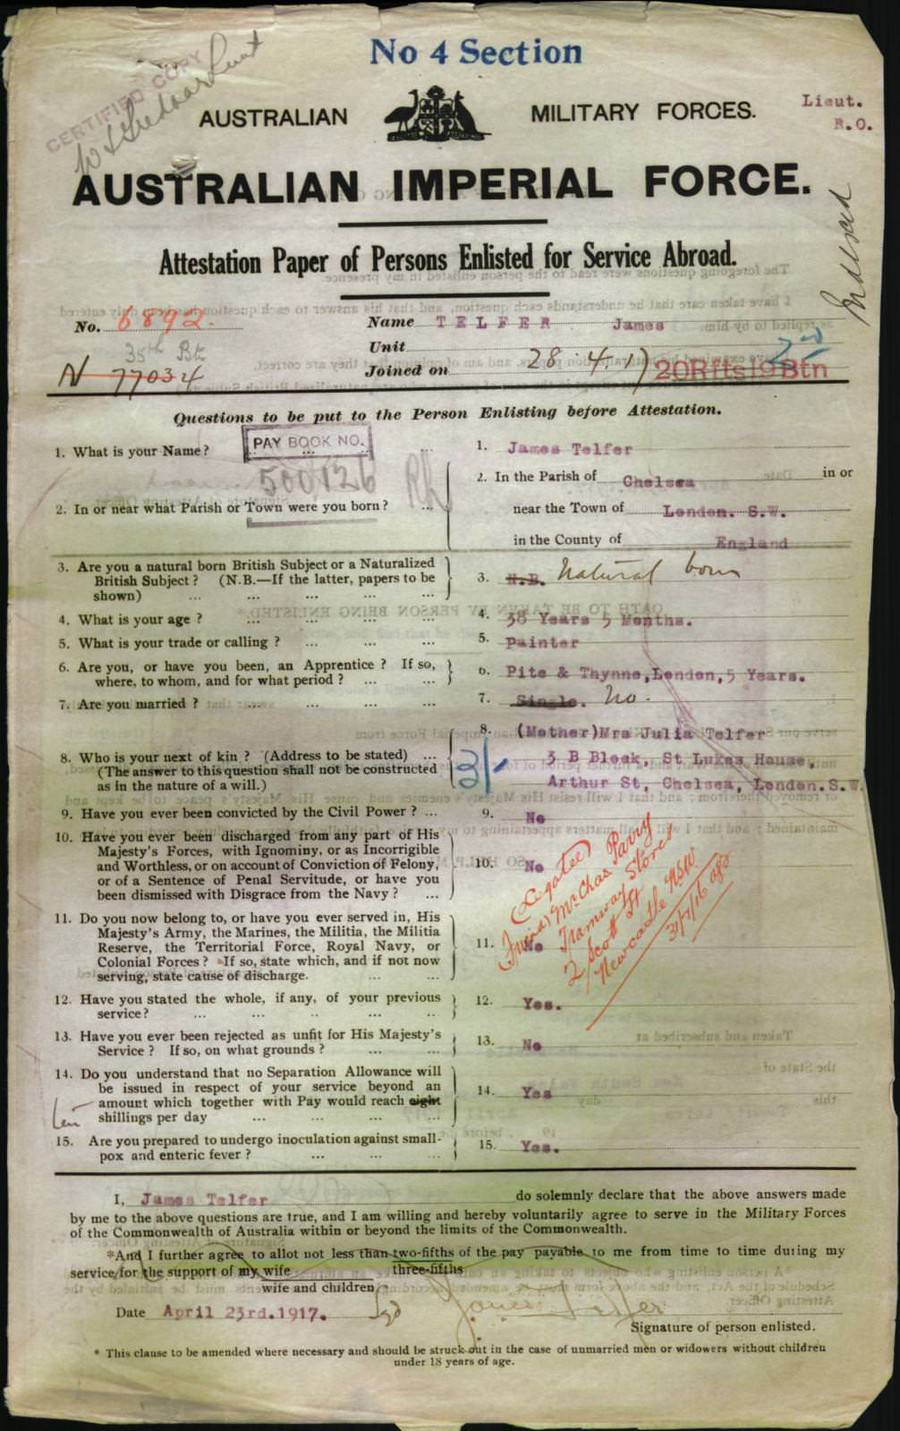 No 4 Section
CERTIFIED COPY
Lieut.
R.O.
AUSTRALIAN MILITARY FORCES.
AUSTRALIAN IMPERIAL FORCE.
Attestation Paper of Persons Enlisted for Service Abroad.
No. 6892.
Name TELFER James
35th Bt
Unit
N 77034
Joined on 28.4.17
20Rfts 19 Btn
2nd
Questions to be put to the Person Enlisting before Attestation.
PAY BOOK NO.
500126
1. What is your Name? ... ...
1. James Telfer
2. In or near what Parish or Town were you born? ...
2. In the Parish of Chelsea in or
near the Town of London. S.W.
in the County of England
3. Are you a natural born British Subject or a Naturalized
British Subject? (N.B.—If the latter, papers to be
shown) ... ... ... ...
3. N.B. Natural born
4. What is your age? ... ... ... ...
4. 38 Years 5 Months.
5. What is your trade or calling? ... ... ...
5. Painter
6. Are you, or have you been, an Apprentice? If so,
where, to whom, and for what period? ... ...
6. Pite & Thynne,London,5 Years.
7. Are you married? ... ... ... ...
7. Single. No.
8. Who is your next of kin? (Address to be stated) ...
(The answer to this question shall not be constructed
as in the nature of a will.)
8. (Mother)Mrs Julia Telfer
3 B Block, St Lukes House,
Arthur St, Chelsea, London.S.W.
9. Have you ever been convicted by the Civil Power? ...
9. No
10. Have you ever been discharged from any part of His
Majesty's Forces, with Ignominy, or as Incorrigible
and Worthless, or on account of Conviction of Felony,
or of a Sentence of Penal Servitude, or have you
been dismissed with Disgrace from the Navy? ...
10. No
(Legatee)
(Friend) Mr Chas Parry
Tramway Stores
2 Scott St
Newcastle NSW
11. Do you now belong to, or have you ever served in, His
Majesty's Army, the Marines, the Militia, the Militia
Reserve, the Territorial Force, Royal Navy, or
Colonial Forces? If so, state which, and if not now
serving, state cause of discharge. ... ...
11. No
12. Have you stated the whole, if any, of your previous
service? ... ... ... ... ...
12. Yes.
13. Have you ever been rejected as unfit for His Majesty's
Service? If so, on what grounds? ... ...
13. No
14. Do you understand that no Separation Allowance will
be issued in respect of your service beyond an
amount which together with Pay would reach eight
ten
shillings per day ... ... ... ...
14. Yes
15. Are you prepared to undergo inoculation against small-
pox and enteric fever? ... ... ...
15. Yes.
I, James Telfer do solemnly declare that the above answers made
by me to the above questions are true, and I am willing and hereby voluntarily agree to serve in the Military Forces
of the Commonwealth of Australia within or beyond the limits of the Commonwealth.
*And I further agree to allot not less than two-fifths of the pay payable to me from time to time during my
service for the support of my wife three-fifths
wife and children
Date April 23rd.1917. Sgd James Telfer
Signature of person enlisted.
* This clause to be amended where necessary and should be struck out in the case of unmarried men or widowers without children
under 18 years of age.